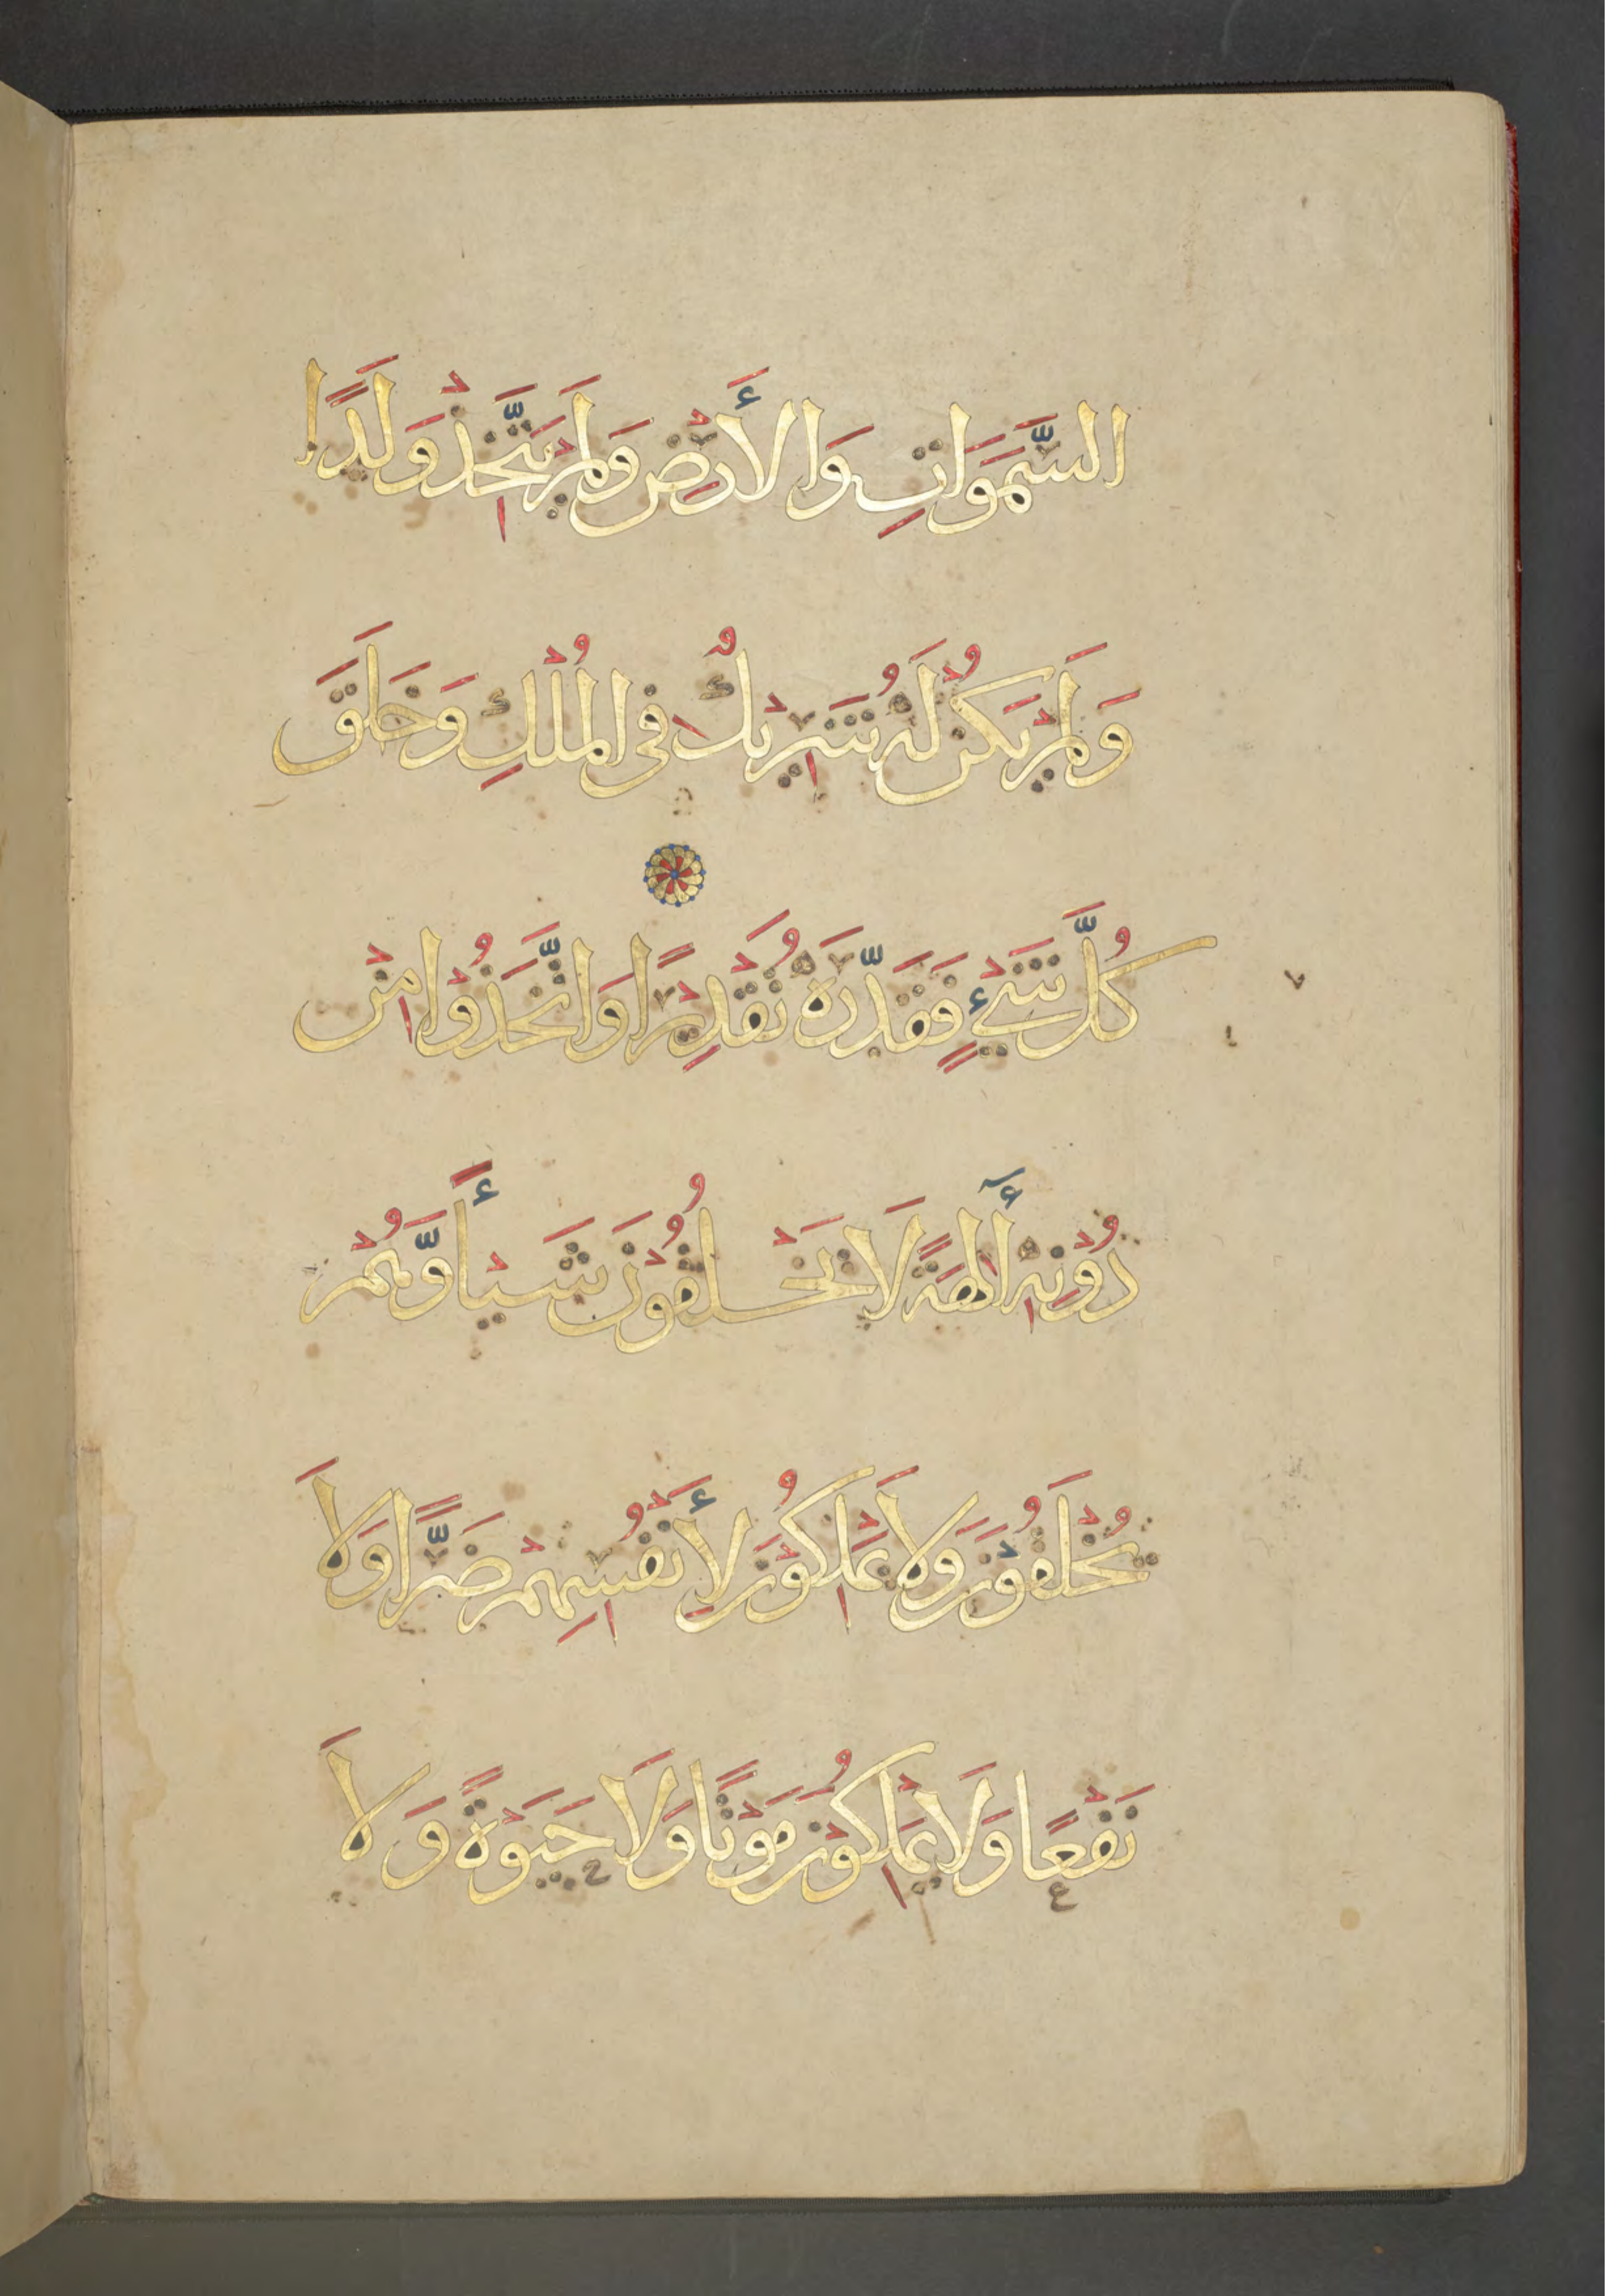 السَّمَوَاتِ وَالأَرْضِ وَلَمْ يَتَّخِذْ وَلَدًا
وَلَمْ يَكُنْ لَهُ شَرِيْكٌ فِى الْمُلْكِ وَخَلَقَ
كُلَّ شَيْءٍ فَقَدَّرَهُ تَقْدِيْرًا وَاتَّخَذُوْا مِنْ
دُوْنِهِ أٓلِهَةً لَا يَخْلُقُوْنَ شَيْأً وَّهُمْ
يُخْلَقُوْنَ وَلَا يَمْلِكُوْنَ لِأَنْفُسِهِمْ ضَرًّا وَلَا
نَفْعًا وَلَا يَمْلِكُوْنَ مَوْتًا وَلَا حَيَوْةً وَلَا